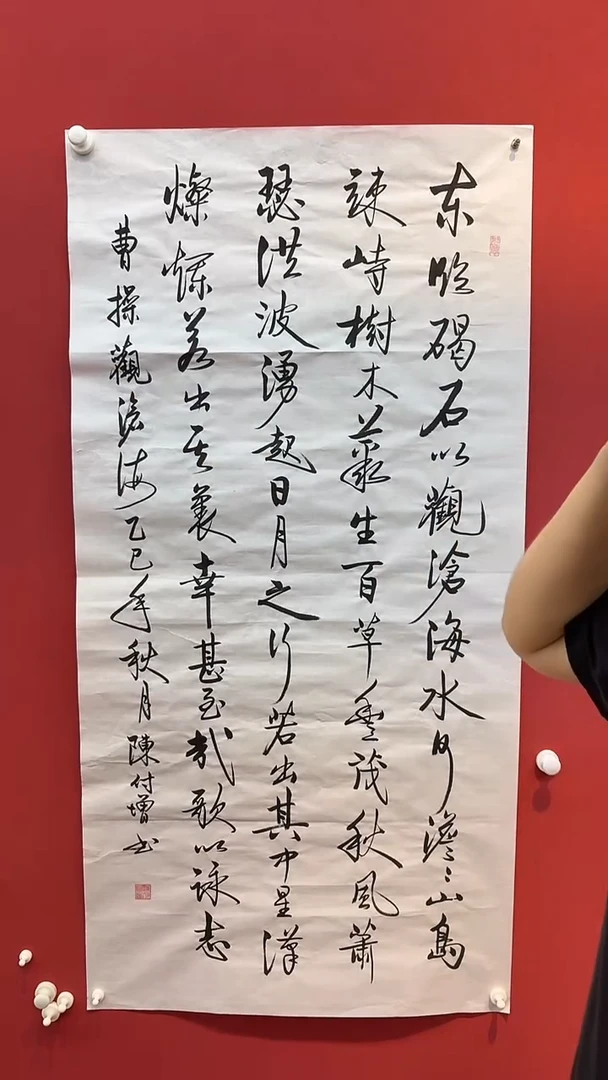 东临碣石以觀滄海水何澹〻山島
竦峙樹木叢生百草豐茂秋風蕭
瑟洪波湧起日月之行若出其中星漢
燦爛若出其裏幸甚至哉歌以詠志
曹操觀滄海乙巳年秋月陳付增书